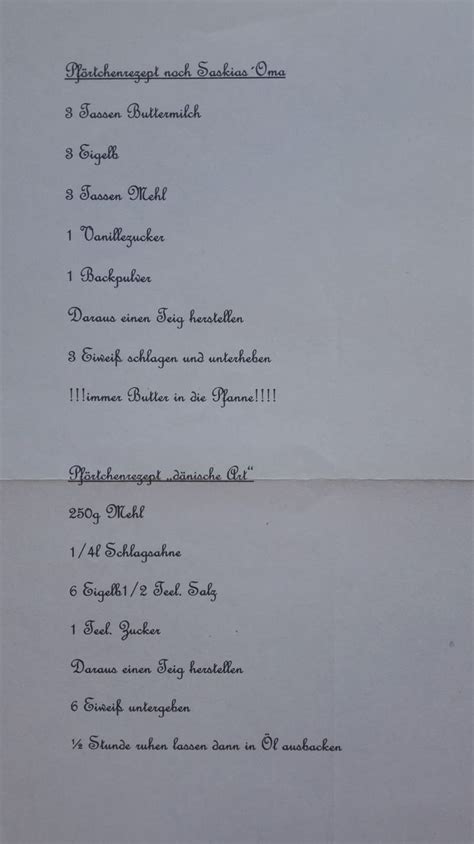 Pförtchenrezept nach Saskias´Oma
3 Tassen Buttermilch
3 Eigelb
3 Tassen Mehl
1 Vanillezucker
1 Backpulver
Daraus einen Teig herstellen
3 Eiweiß schlagen und unterheben
!!!immer Butter in die Pfanne!!!!
Pförtchenrezept „dänische Art“
250g Mehl
1/4l Schlagsahne
6 Eigelb1/2 Teel. Salz
1 Teel. Zucker
Daraus einen Teig herstellen
6 Eiweiß untergeben
½ Stunde ruhen lassen dann in Öl ausbacken